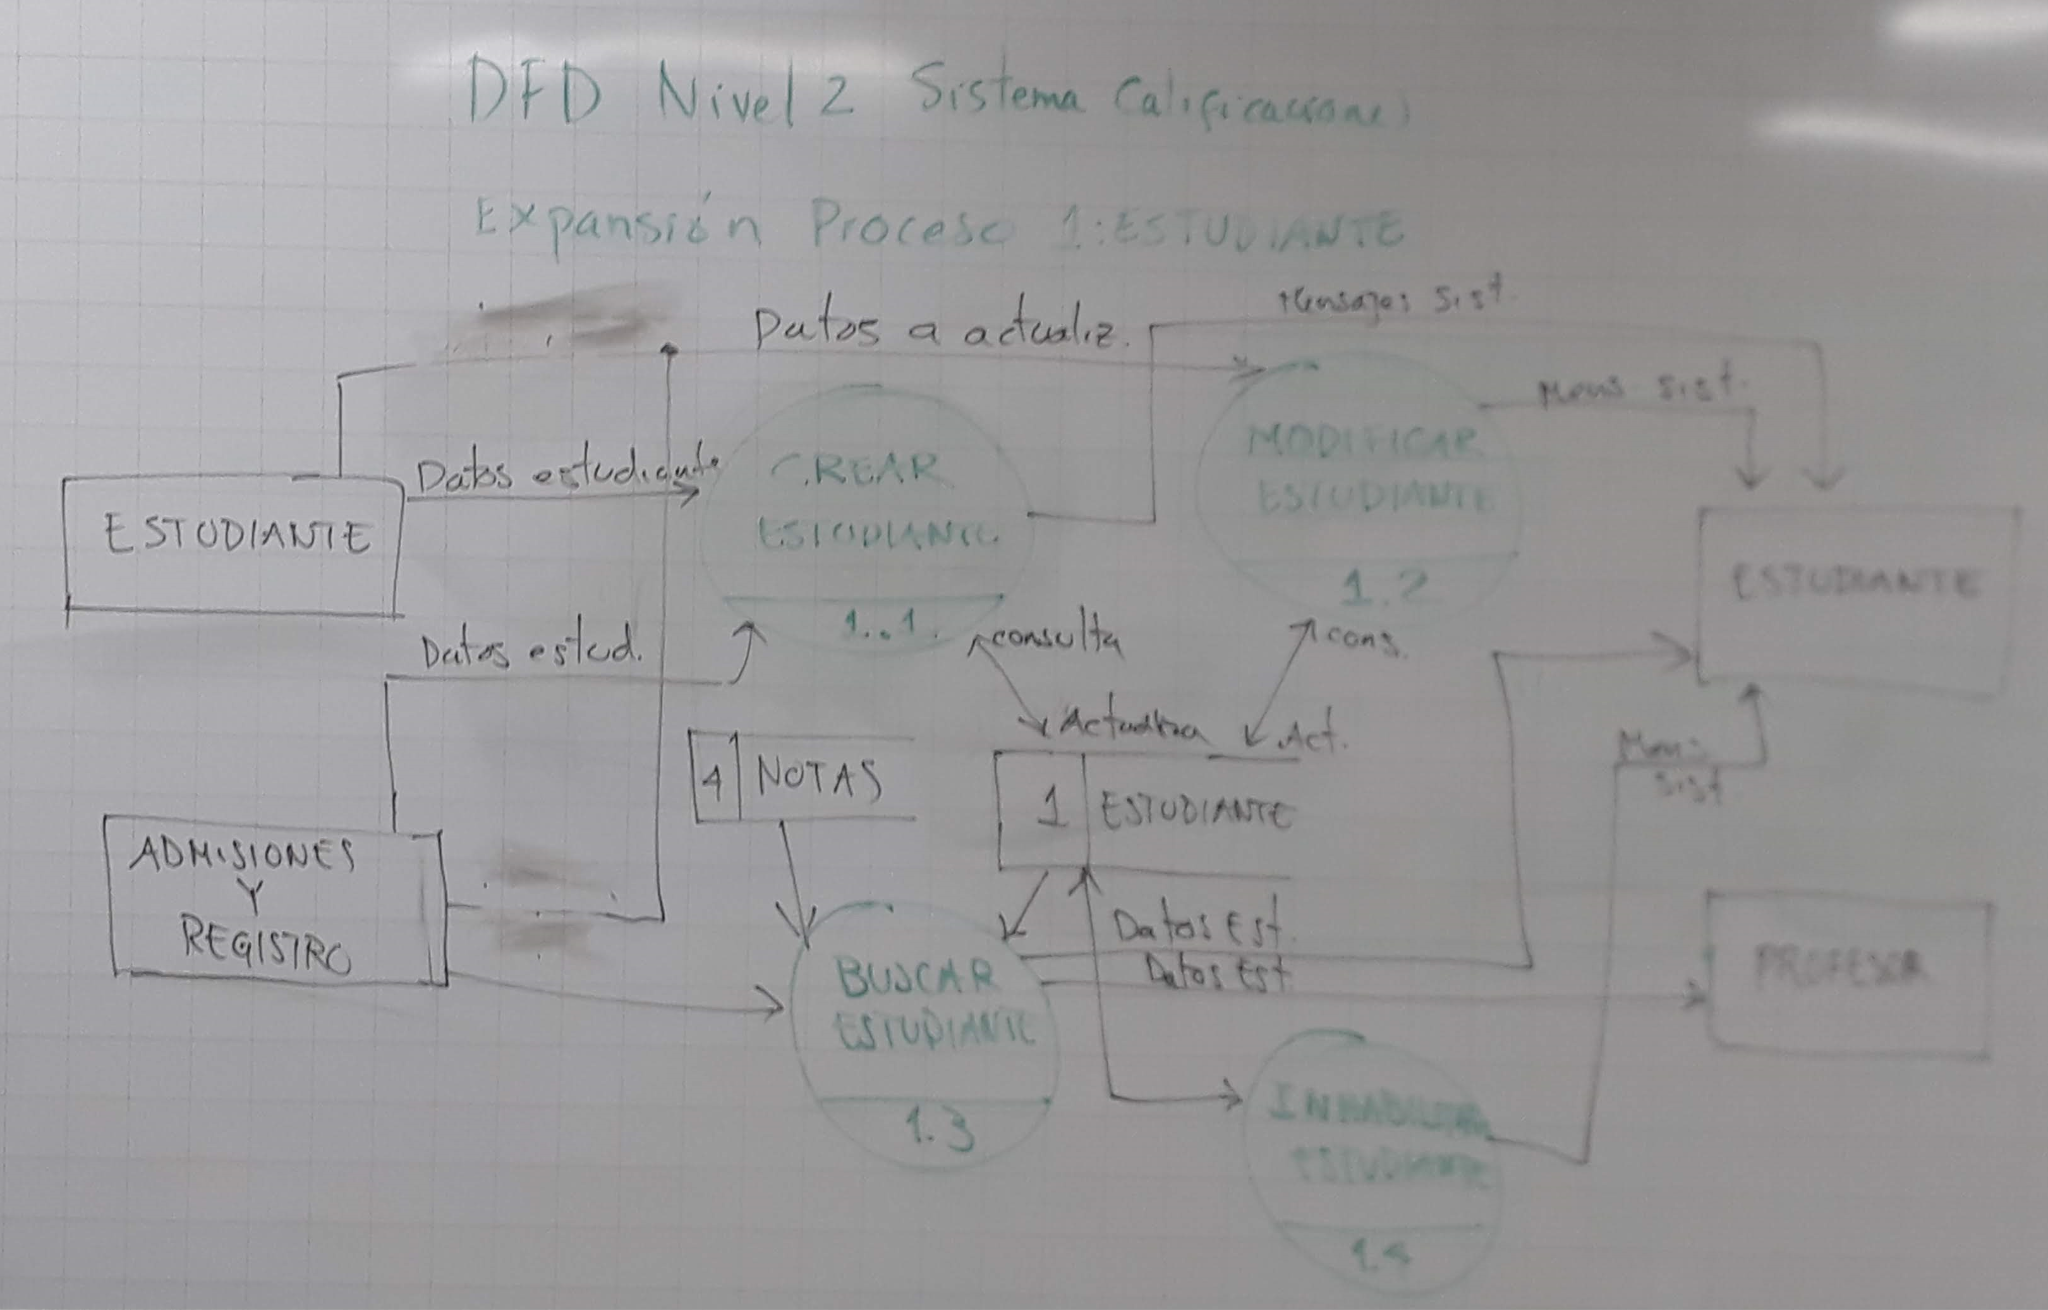 DFD Nivel 2 Sistema Calificaciones
Expansión Proceso 1: ESTUDIANTE
Mensajes Sist.
Datos a actualiz.
Mens Sist.
Datos estudiante
CREAR
ESTUDIANTE
1.1.
MODIFICAR
ESTUDIANTE
1.2
ESTUDIANTE
ESTUDIANTE
Datos estud.
consulta
cons.
Actualiza
Act.
4 NOTAS
1 ESTUDIANTE
Mens
Sist
ADMISIONES
Y
REGISTRO
Datos Est.
Datos Est
BUSCAR
ESTUDIANTE
1.3
PROFESOR
INHABILITAR
ESTUDIANTE
1.4